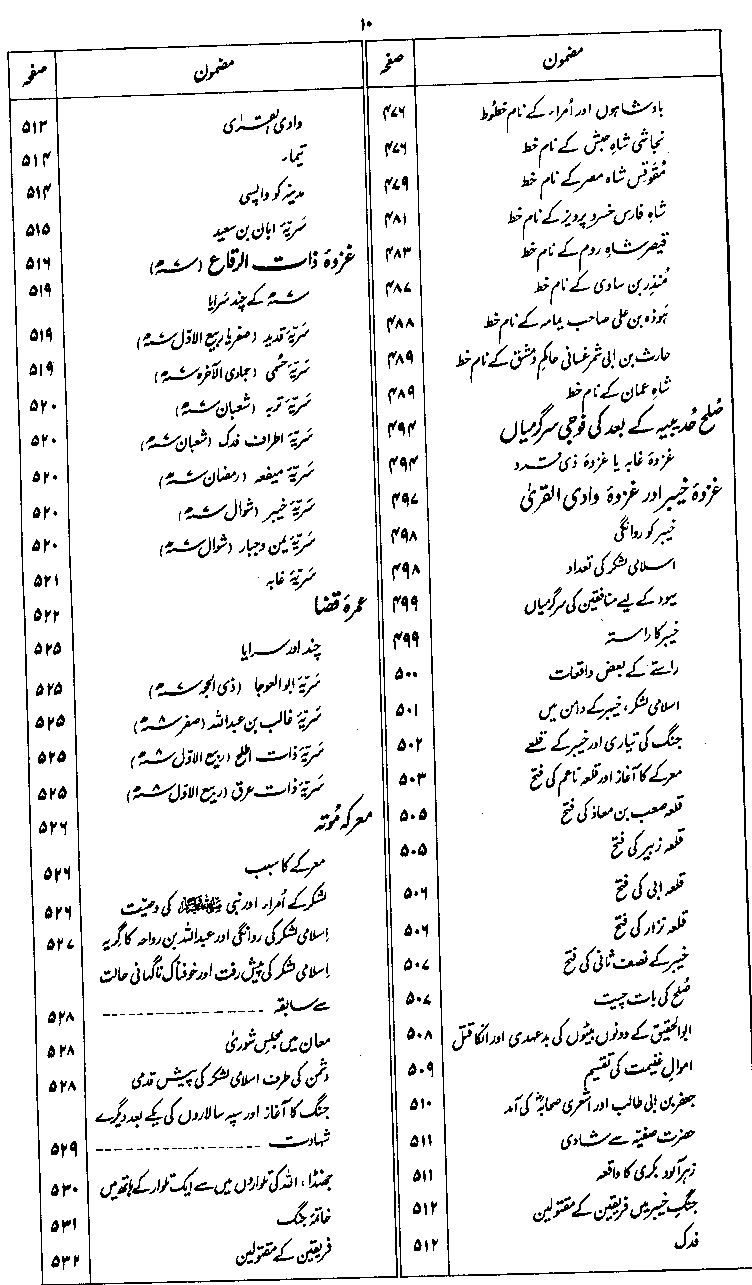 ۱۰
مضمون صفحہ
بادشاہوں اور اُمراء کے نام خطوط ۴۷۶
نجاشی شاہِ حبش کے نام خط ۴۷۶
مُقَوقس شاہ مصر کے نام خط ۴۷۹
شاہِ فارس خسرو پرویز کے نام خط ۴۸۱
قیصر شاہِ روم کے نام خط ۴۸۳
مُنذر بن ساوی کے نام خط ۴۸۷
ہوذہ بن علی صاحب یمامہ کے نام خط ۴۸۸
حارث بن ابی شمر غسانی حاکمِ دمشق کے نام خط ۴۸۹
شاہِ عمان کے نام خط ۴۸۹
صُلح حُدیبیہ کے بعد کی فوجی سرگرمیاں ۴۹۴
غزوۂ غابہ یا غزوۂ ذی قرد ۴۹۴
غزوۂ خیبر اور غزوۂ وادی القریٰ ۴۹۷
خیبر کو روانگی ۴۹۸
اسلامی لشکر کی تعداد ۴۹۸
یہود کے لیے منافقین کی سرگرمیاں ۴۹۹
خیبر کا راستہ ۴۹۹
راستے کے بعض واقعات ۵۰۰
اسلامی لشکر، خیبر کے دامن میں ۵۰۱
جنگ کی تیاری اور خیبر کے قلعے ۵۰۲
معرکے کا آغاز اور قلعہ ناعم کی فتح ۵۰۳
قلعہ صعب بن معاذ کی فتح ۵۰۵
قلعہ زبیر کی فتح ۵۰۵
قلعہ ابی کی فتح ۵۰۶
قلعہ نزار کی فتح ۵۰۶
خیبر کے نصف ثانی کی فتح ۵۰۷
صُلح کی بات چیت ۵۰۷
ابوالحقیق کے دونوں بیٹوں کی بدعہدی اور انکا قتل ۵۰۸
اموالِ غنیمت کی تقسیم ۵۰۹
جعفر بن ابی طالب اور اشعری صحابہؓ کی آمد ۵۱۰
حضرت صفیہؓ سے شادی ۵۱۱
زہر آلود بکری کا واقعہ ۵۱۱
جنگِ خیبر میں فریقین کے مقتولین ۵۱۲
فدک ۵۱۲
مضمون صفحہ
وادیٔ القریٰ ۵۱۳
تیماء ۵۱۴
مدینہ کو واپسی ۵۱۴
سَرِیّۂ ابان بن سعید ۵۱۵
غزوۂ ذات الرقاع (۷ھ) ۵۱۶
۷ھ کے چند سَرایا ۵۱۹
سَرِیّۂ قدید (صفر یا ربیع الاوّل ۷ھ) ۵۱۹
سَرِیّۂ حِسْمی (جمادی الآخرہ ۷ھ) ۵۱۹
سَرِیّۂ تربہ (شعبان ۷ھ) ۵۲۰
سَرِیّۂ اطراف فدک (شعبان ۷ھ) ۵۲۰
سَرِیّۂ میفعہ (رمضان ۷ھ) ۵۲۰
سَرِیّۂ خیبر (شوال ۷ھ) ۵۲۰
سَرِیّۂ یمن وجبار (شوال ۷ھ) ۵۲۰
سَرِیّۂ غابہ ۵۲۱
عمرۂ قضا ۵۲۲
چند اور سرایا ۵۲۵
سَرِیّۂ ابوالعوجا (ذی الحجہ ۷ھ) ۵۲۵
سَرِیّۂ غالب بن عبداللہ (صفر ۸ھ) ۵۲۵
سَرِیّۂ ذات اطلح (ربیع الاوّل ۸ھ) ۵۲۵
سَرِیّۂ ذات عرق (ربیع الاوّل ۸ھ) ۵۲۵
معرکۂ مُوتہ ۵۲۶
معرکے کا سبب ۵۲۶
لشکر کے اُمراء اور نبی ﷺ کی وصیّت ۵۲۶
اسلامی لشکر کی روانگی اور عبداللہ بن رواحہ کا گریہ ۵۲۷
اسلامی لشکر کی پیش رفت اور خوفناک ناگہانی حالت
سے سابقہ ۵۲۸
معان میں مجلسِ شوریٰ ۵۲۸
دشمن کی طرف اسلامی لشکر کی پیش قدمی ۵۲۸
جنگ کا آغاز اور سپہ سالاروں کی یکے بعد دیگرے
شہادت ۵۲۹
جھنڈا، اللہ کی تلواروں میں سے ایک تلوار کے ہاتھ میں ۵۳۰
خاتمۂ جنگ ۵۳۱
فریقین کے مقتولین ۵۳۲